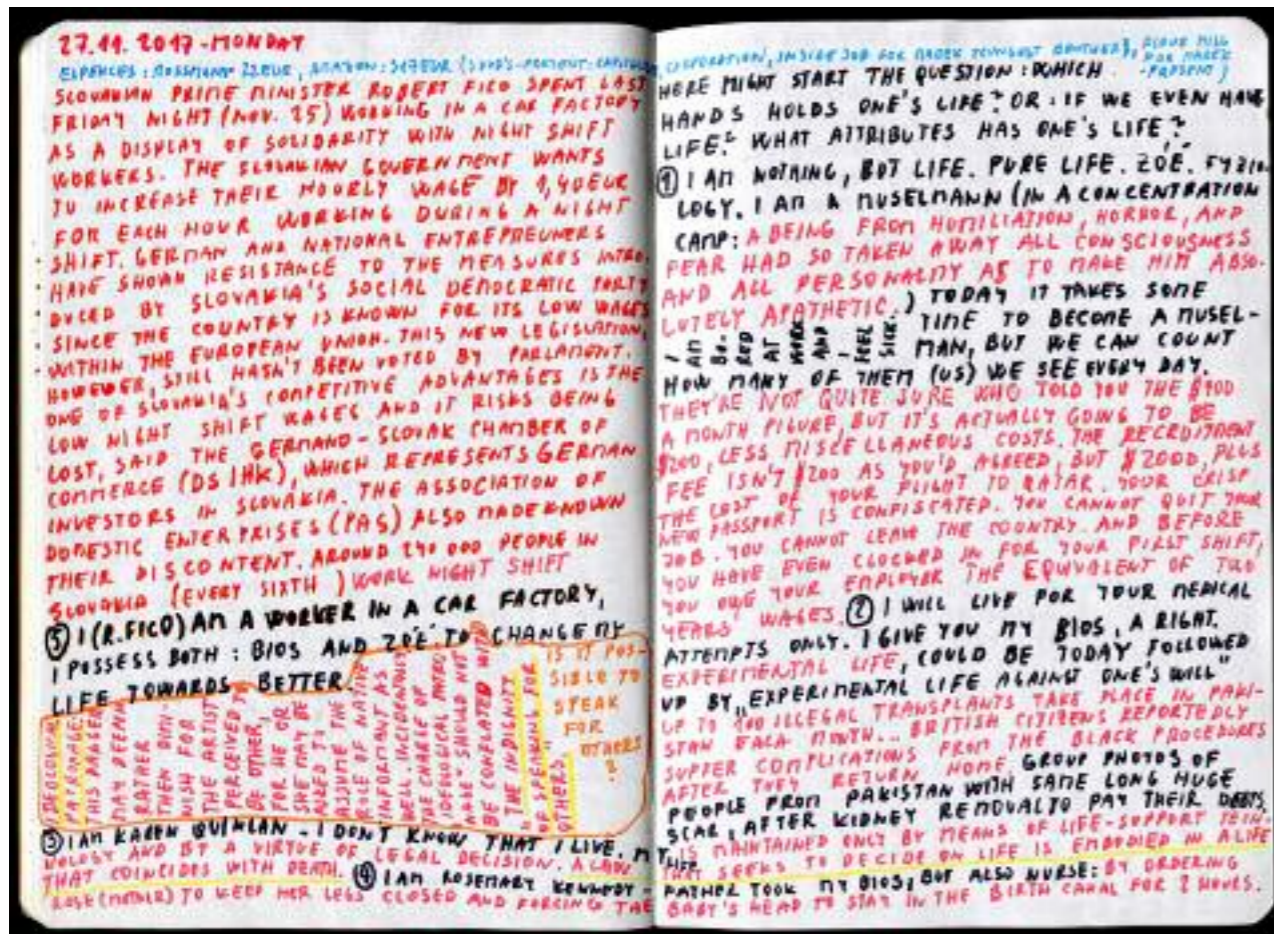 27.11.2017-MONDAY
EXPENCES: ROSSMANN 22EUR, AMAZON:
SLOVAKIAN PRIME MINISTER ROBERT FICO SPENT LAST
FRIDAY NIGHT (NOV. 25) WORKING IN A CAR FACTORY
AS A DISPLAY OF SOLIDARITY WITH NIGHT SHIFT
WORKERS. THE SLOVAKIAN GOVERNMENT WANTS
TO INCREASE THEIR HOURLY WAGE BY 1,40EUR
FOR EACH HOUR WORKING DURING A NIGHT
SHIFT. GERMAN AND NATIONAL ENTREPREUNERS
HAVE SHOWN RESISTANCE TO THE MEASURES INTRO-
DUCED BY SLOVAKIA'S SOCIAL DEMOCRATIC PARTY
SINCE THE COUNTRY IS KNOWN FOR ITS LOW WAGES
WITHIN THE EUROPEAN UNION. THIS NEW LEGISLATION,
HOWEVER, STILL HASN'T BEEN VOTED BY PARLAMENT.
ONE OF SLOVAKIA'S COMPETITIVE ADVANTAGES IS THE
LOW NIGHT SHIFT WAGES AND IT RISKS BEING
LOST, SAID THE GERMANO-SLOVAK CHAMBER OF
COMMERCE (DSIHK), WHICH REPRESENTS GERMAN
INVESTORS IN SLOVAKIA. THE ASSOCIATION OF
DOMESTIC ENTERPRISES (PAS) ALSO MADE KNOWN
THEIR DISCONTENT. AROUND 240 000 PEOPLE IN
SLOVAKIA (EVERY SIXTH) WORK NIGHT SHIFT
⑤ I (R.FICO) AM A WORKER IN A CAR FACTORY,
I POSSESS BOTH: BIOS AND ZOË TO CHANGE MY
LIFE TOWARDS BETTER.
IDEOLOGICAL
PATRONAGE:
THIS PASSAGE
MAY DEPEND
RATHER
THEN
WISH FOR
THE ARTIST
PERCEIVED TO
BE OTHER,
FOR HE OR
SHE MAY BE
ASKED TO
ASSUME THE
ROLE OF NATIVE
INFORMANT AS
WELL. INCIDENTALLY
THE CHARGE OF
"IDEOLOGICAL PATRO-
NAGE" SHOULD NOT
BE CONFLATED WITH
"THE INDIGNITY
OF SPEAKING FOR
OTHERS."
IS IT POS-
SIBLE TO
SPEAK
FOR
OTHERS
?
③ I AM KAREN QUINLAN - I DON'T KNOW THAT I LIVE. MY LIFE
NOLOGY AND BY A VIRTUE OF LEGAL DECISION. A LAW
THAT COINCIDES WITH DEATH. ④ I AM ROSEMARY KENNEDY -
ROSE (MOTHER) TO KEEP HER LEGS CLOSED AND FORCING THE
CORPORATION, INSIDE JOB FOR MAREK YOUNGEST BROTHER),
FOR MAREK
-PRESENT)
HERE MIGHT START THE QUESTION: WHICH
HANDS HOLDS ONE'S LIFE? OR: IF WE EVEN HAVE
LIFE? WHAT ATTRIBUTES HAS ONE'S LIFE?
① I AM NOTHING, BUT LIFE. PURE LIFE. ZOË. FYZIO-
LOGY. I AM A MUSELMANN (IN A CONCENTRATION
CAMP: A BEING FROM HUMILIATION, HORROR, AND
FEAR HAD SO TAKEN AWAY ALL CONSCIOUSNESS
AND ALL PERSONALITY AS TO MAKE HIM ABSO-
LUTELY APATHETIC.) TODAY IT TAKES SOME
I AM BO-RED AT WORK AND I FEEL SICK.
TIME TO BECOME A MUSEL-
MAN, BUT WE CAN COUNT
HOW MANY OF THEM (US) WE SEE EVERY DAY.
THEY'RE NOT QUITE SURE WHO TOLD YOU THE $400
A MONTH FIGURE, BUT IT'S ACTUALLY GOING TO BE
$200, LESS MISCELLANEOUS COSTS. THE RECRUITMENT
FEE ISN'T $200 AS YOU'D AGREED, BUT $2000, PLUS
THE COST OF YOUR FLIGHT TO QATAR. YOUR CRISP
NEW PASSPORT IS CONFISCATED. YOU CANNOT QUIT YOUR
JOB. YOU CANNOT LEAVE THE COUNTRY. AND BEFORE
YOU HAVE EVEN CLOCKED IN FOR YOUR FIRST SHIFT,
YOU OWE YOUR EMPLOYER THE EQUIVALENT OF TWO
YEARS' WAGES. ② I WILL LIVE FOR YOUR MEDICAL
ATTEMPTS ONLY. I GIVE YOU MY BIOS, A RIGHT.
EXPERIMENTAL LIFE, COULD BE TODAY FOLLOWED
UP BY „EXPERIMENTAL LIFE AGAINST ONE'S WILL"
UP TO 100 ILLEGAL TRANSPLANTS TAKE PLACE IN PAKI-
STAN EACH MONTH... BRITISH CITIZENS REPORTEDLY
SUFFER COMPLICATIONS FROM THE BLACK PROCEDURES
AFTER THEY RETURN HOME. GROUP PHOTOS OF
PEOPLE FROM PAKISTAN WITH SAME LONG HUGE
SCAR, AFTER KIDNEY REMOVAL TO PAY THEIR DEBTS.
IS MAINTAINED ONLY BY MEANS OF LIFE-SUPPORT TECH-
THAT SEEKS TO DECIDE ON LIFE IS EMBODIED IN A LIFE
FATHER TOOK MY BIOS, BUT ALSO NURSE: BY ORDERING
BABY'S HEAD TO STAY IN THE BIRTH CANAL FOR 2 HOURS.